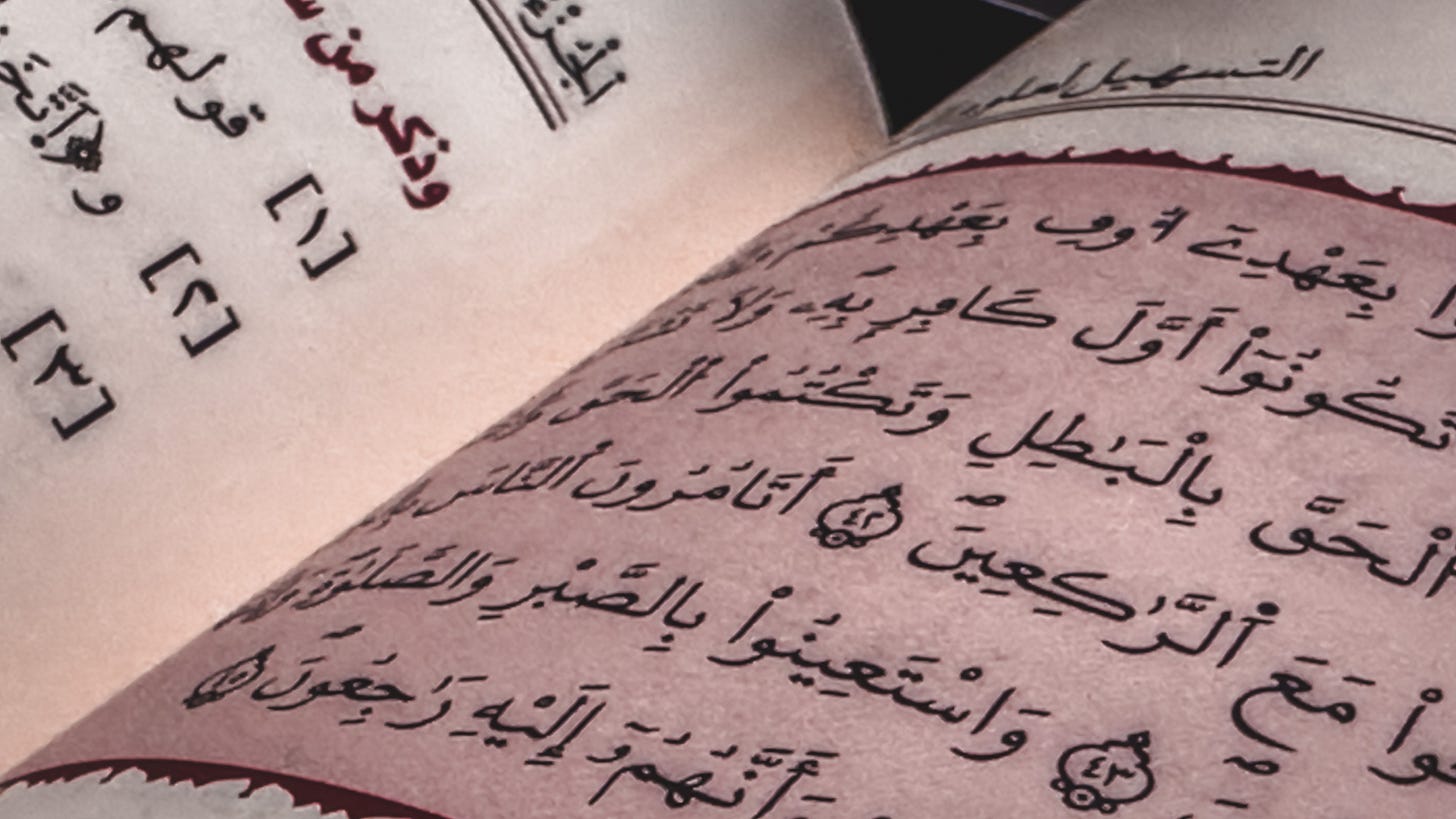 التسهيل لعلوم
بِعَهْدِىٓ أُوفِ بِعَهْدِكُمْ
تَكُونُوٓا۟ أَوَّلَ كَافِرٍۭ بِهِۦ وَلَا
ٱلْحَقَّ بِٱلْبَٰطِلِ وَتَكْتُمُوا۟ ٱلْحَقَّ
مَعَ ٱلرَّٰكِعِينَ ٤٢ أَتَأْمُرُونَ ٱلنَّاسَ
٤٣ وَٱسْتَعِينُوا۟ بِٱلصَّبْرِ وَٱلصَّلَوٰةِ
وَأَنَّهُمْ إِلَيْهِ رَٰجِعُونَ
الجزء
وذكر من
قولهم
و
[١]
[٢]
[٣]